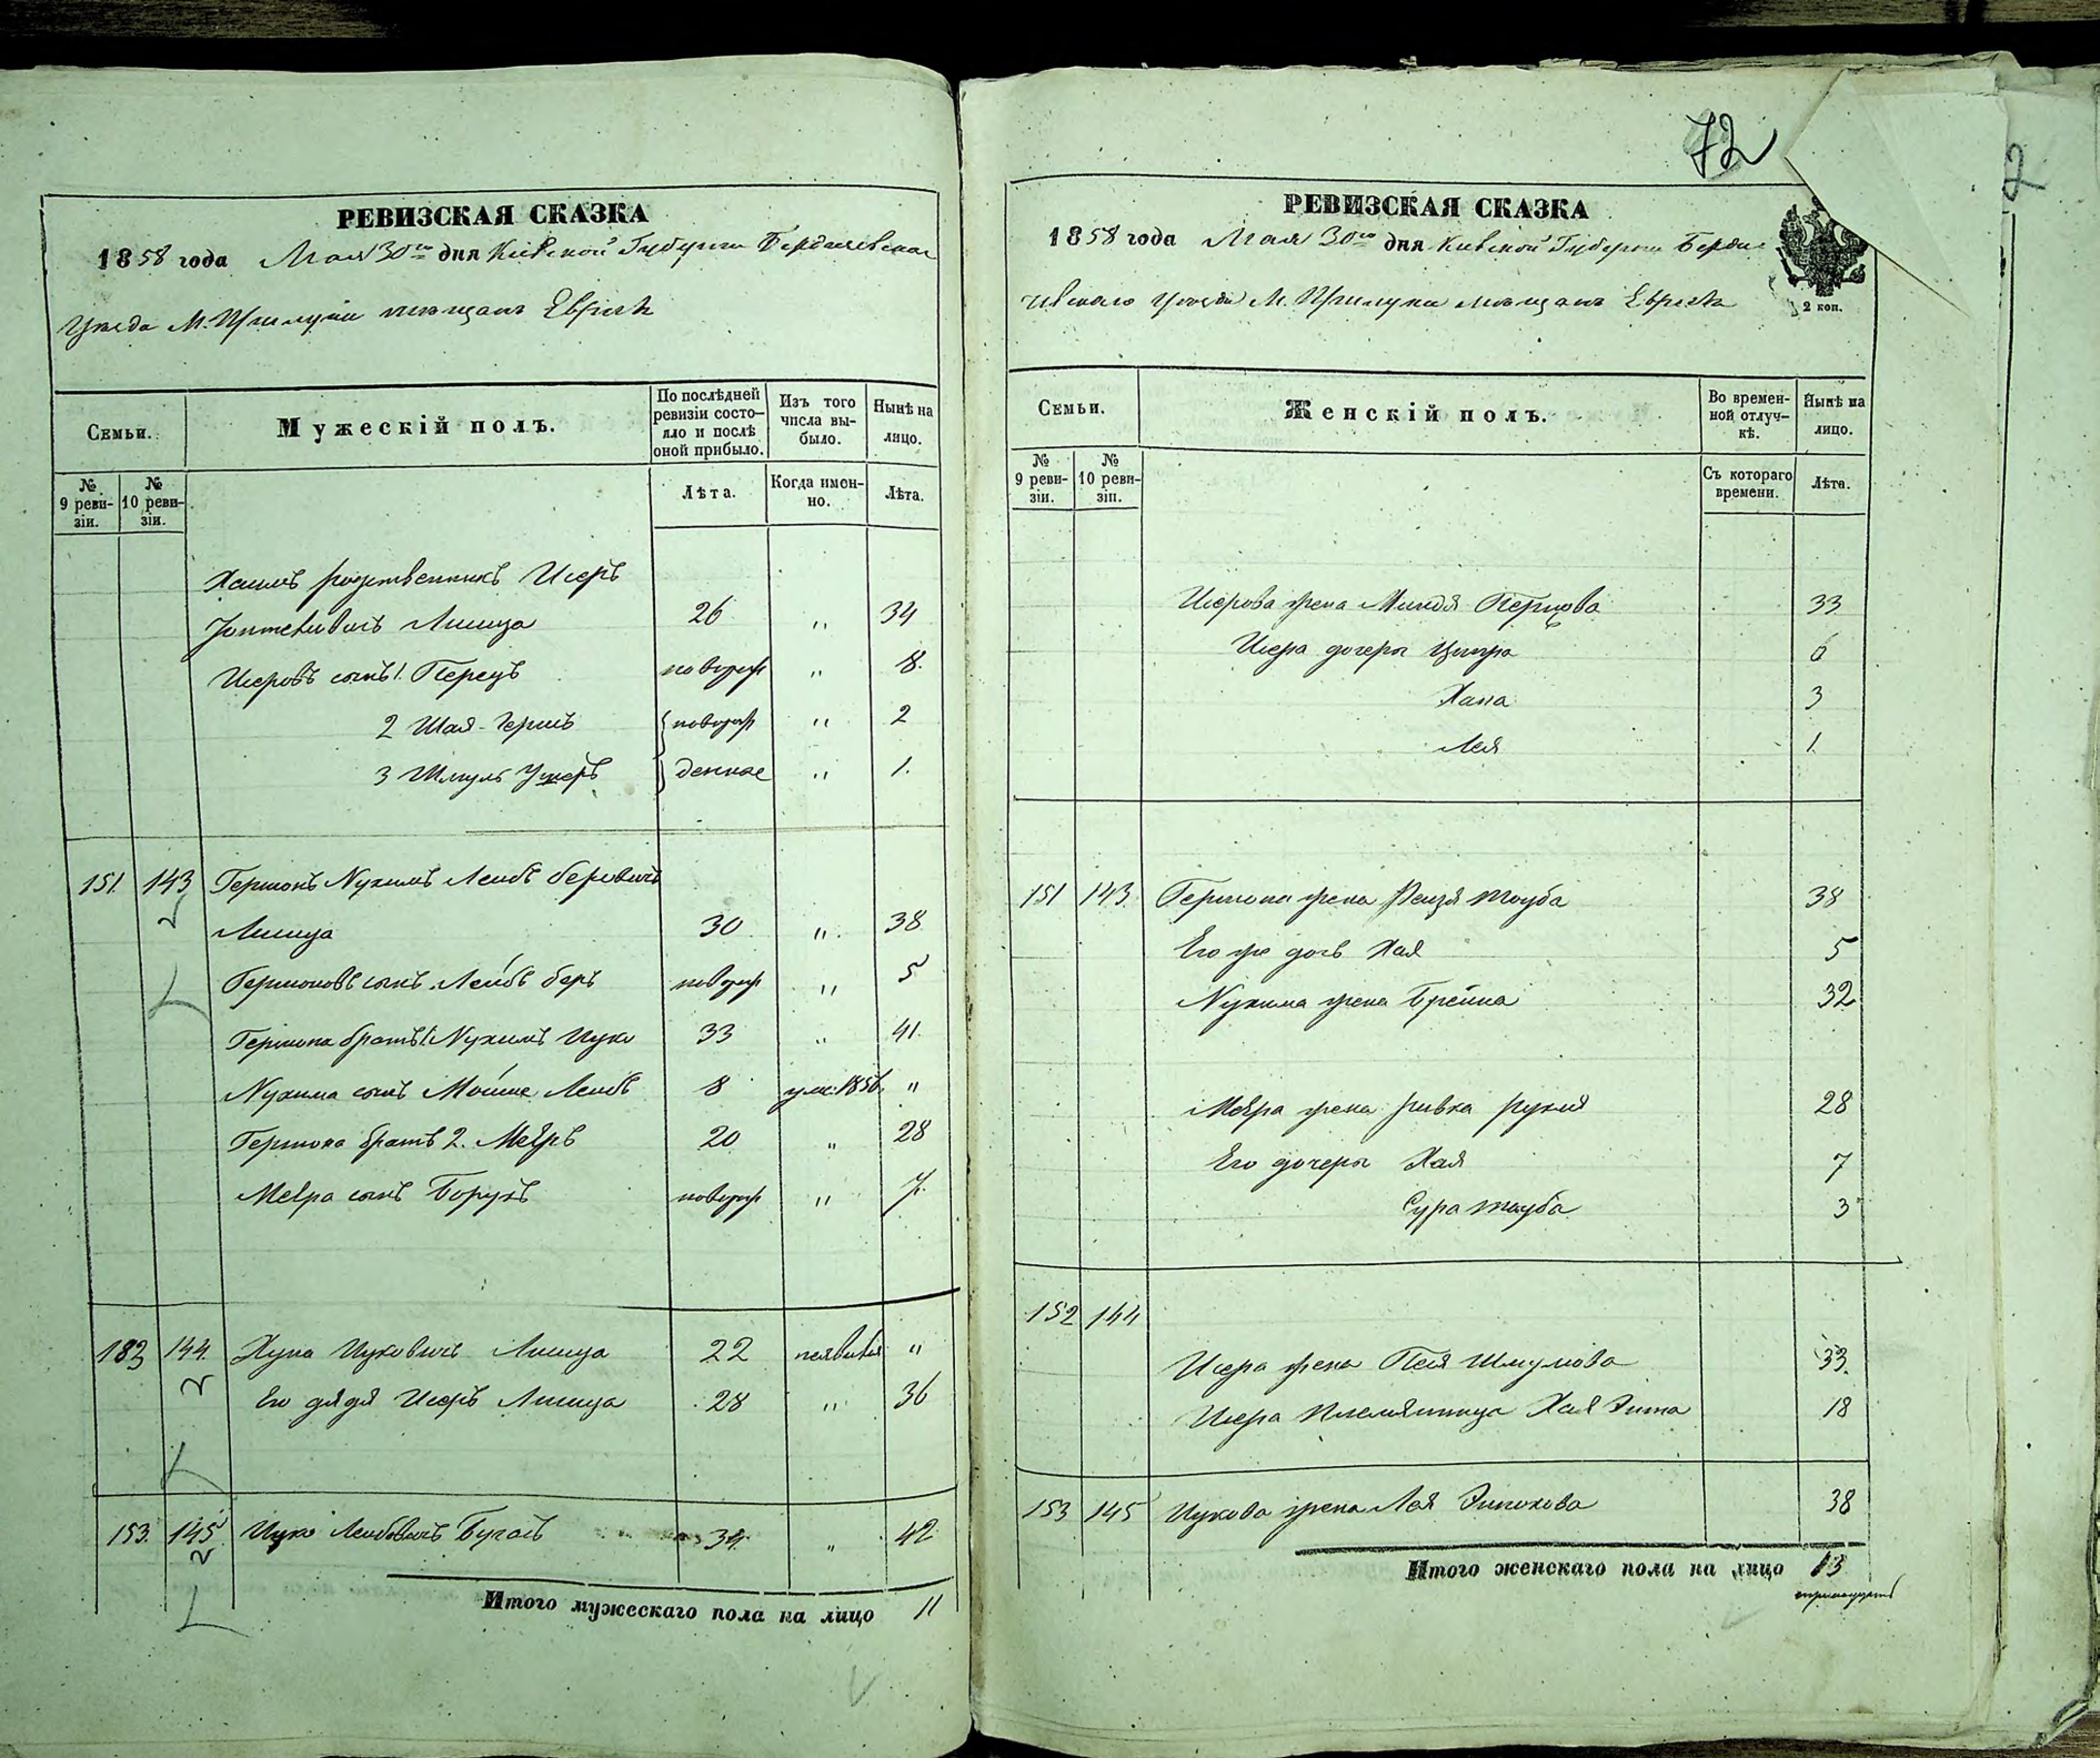 РЕВИЗСКАЯ СКАЗКА
1858 года Мая 30го дня Кіевской Губерніи Бердичевскаго
Уезда М. Прилуки мещанъ Евреевъ
Семьи.
Мужескій полъ.
По послѣдней ревизіи состо-
яло и послѣ
оной прибыло.
Изъ того
числа вы-
было.
Нынѣ на
лицо.
№
9 реви-
зіи.
№
10 реви-
зіи.
Лѣта.
Когда имен-
но.
Лѣта.
родственникъ Исеръ
Лишца 26 " 34
Исеровъ сынъ 1. Перецъ новорож " 8.
2 Шая-Гершъ новорож " 2
3 Шмуль Ушеръ денное " 1.
151. 143 Гершонъ Нухимъ Лейбъ беровичъ
Лишца 30 " 38
Гершоновъ сынъ Лейбъ беръ новорж " 5
Гершона братъ 1. Нухимъ Ицко 33 " 41.
Нухима сынъ Мойше Лейбъ 8 ум. 1856 "
Гершона братъ 2. Меѣръ 20 " 28
Меера сынъ Борухъ новорож " 7.
183 144. Ицковичъ Лишца 22 неявился "
Его дядя Исеръ Лишца 28 " 36
153. 145 Ицко Лейбовичъ 34 " 42
Итого мужескаго пола на лицо 11
72
РЕВИЗСКАЯ СКАЗКА
1858 года Мая 30го дня Кіевской Губерніи Берди-
чевскаго Уезда М. Прилуки мещанъ Евреевъ
2 коп.
Семьи.
Женскій полъ.
Во времен-
ной отлуч-
кѣ.
Нынѣ на
лицо.
№
9 реви-
зіи.
№
10 реви-
зіи.
Съ котораго
времени.
Лѣта.
Исерова жена Миндя Перцова 33
Исера дочери Ципра 6
Хана 3
Лея 1.
151 143. Гершона жена Рейзя Тауба 38
Его же дочь Хая 5
Нухима жена Брейна 32
Меера жена Ривка Рухля 28
Его дочери Хая 7
Сура Тауба 3
152 144
Исера жена Песя Шмулова 33.
Исера племянница Хая Эита 18
153 145 Ицкова жена Лея 38
Итого женскаго пола на лицо 13
тринадцать